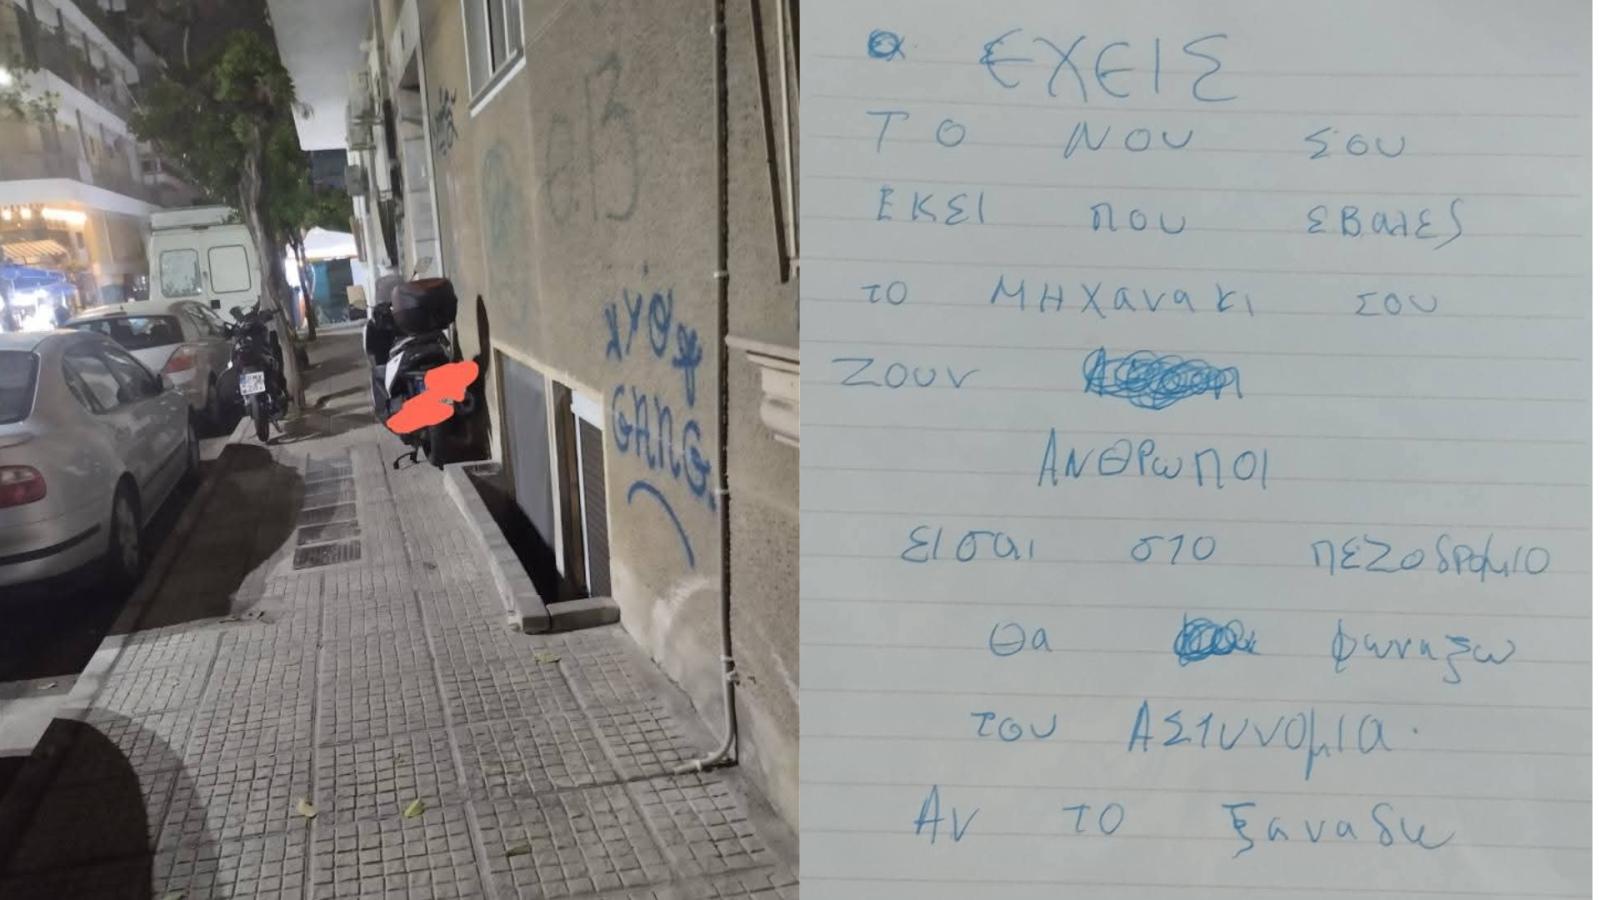 e.13
GANG
ΕΧΕΙΣ
ΤΟ ΝΟΥ ΣΟΥ
ΕΚΕΙ ΠΟΥ ΕΒΑΛΕΣ
ΤΟ ΜΗΧαναΚΙ ΣΟΥ
ΖΟΥΝ
ΑΝΘΡωΠΟΙ
ΕΙσαι στο πεΖοδρομιο
Θα φωναξω
του ΑΣΤυνομια.
Αν το ξαναδω